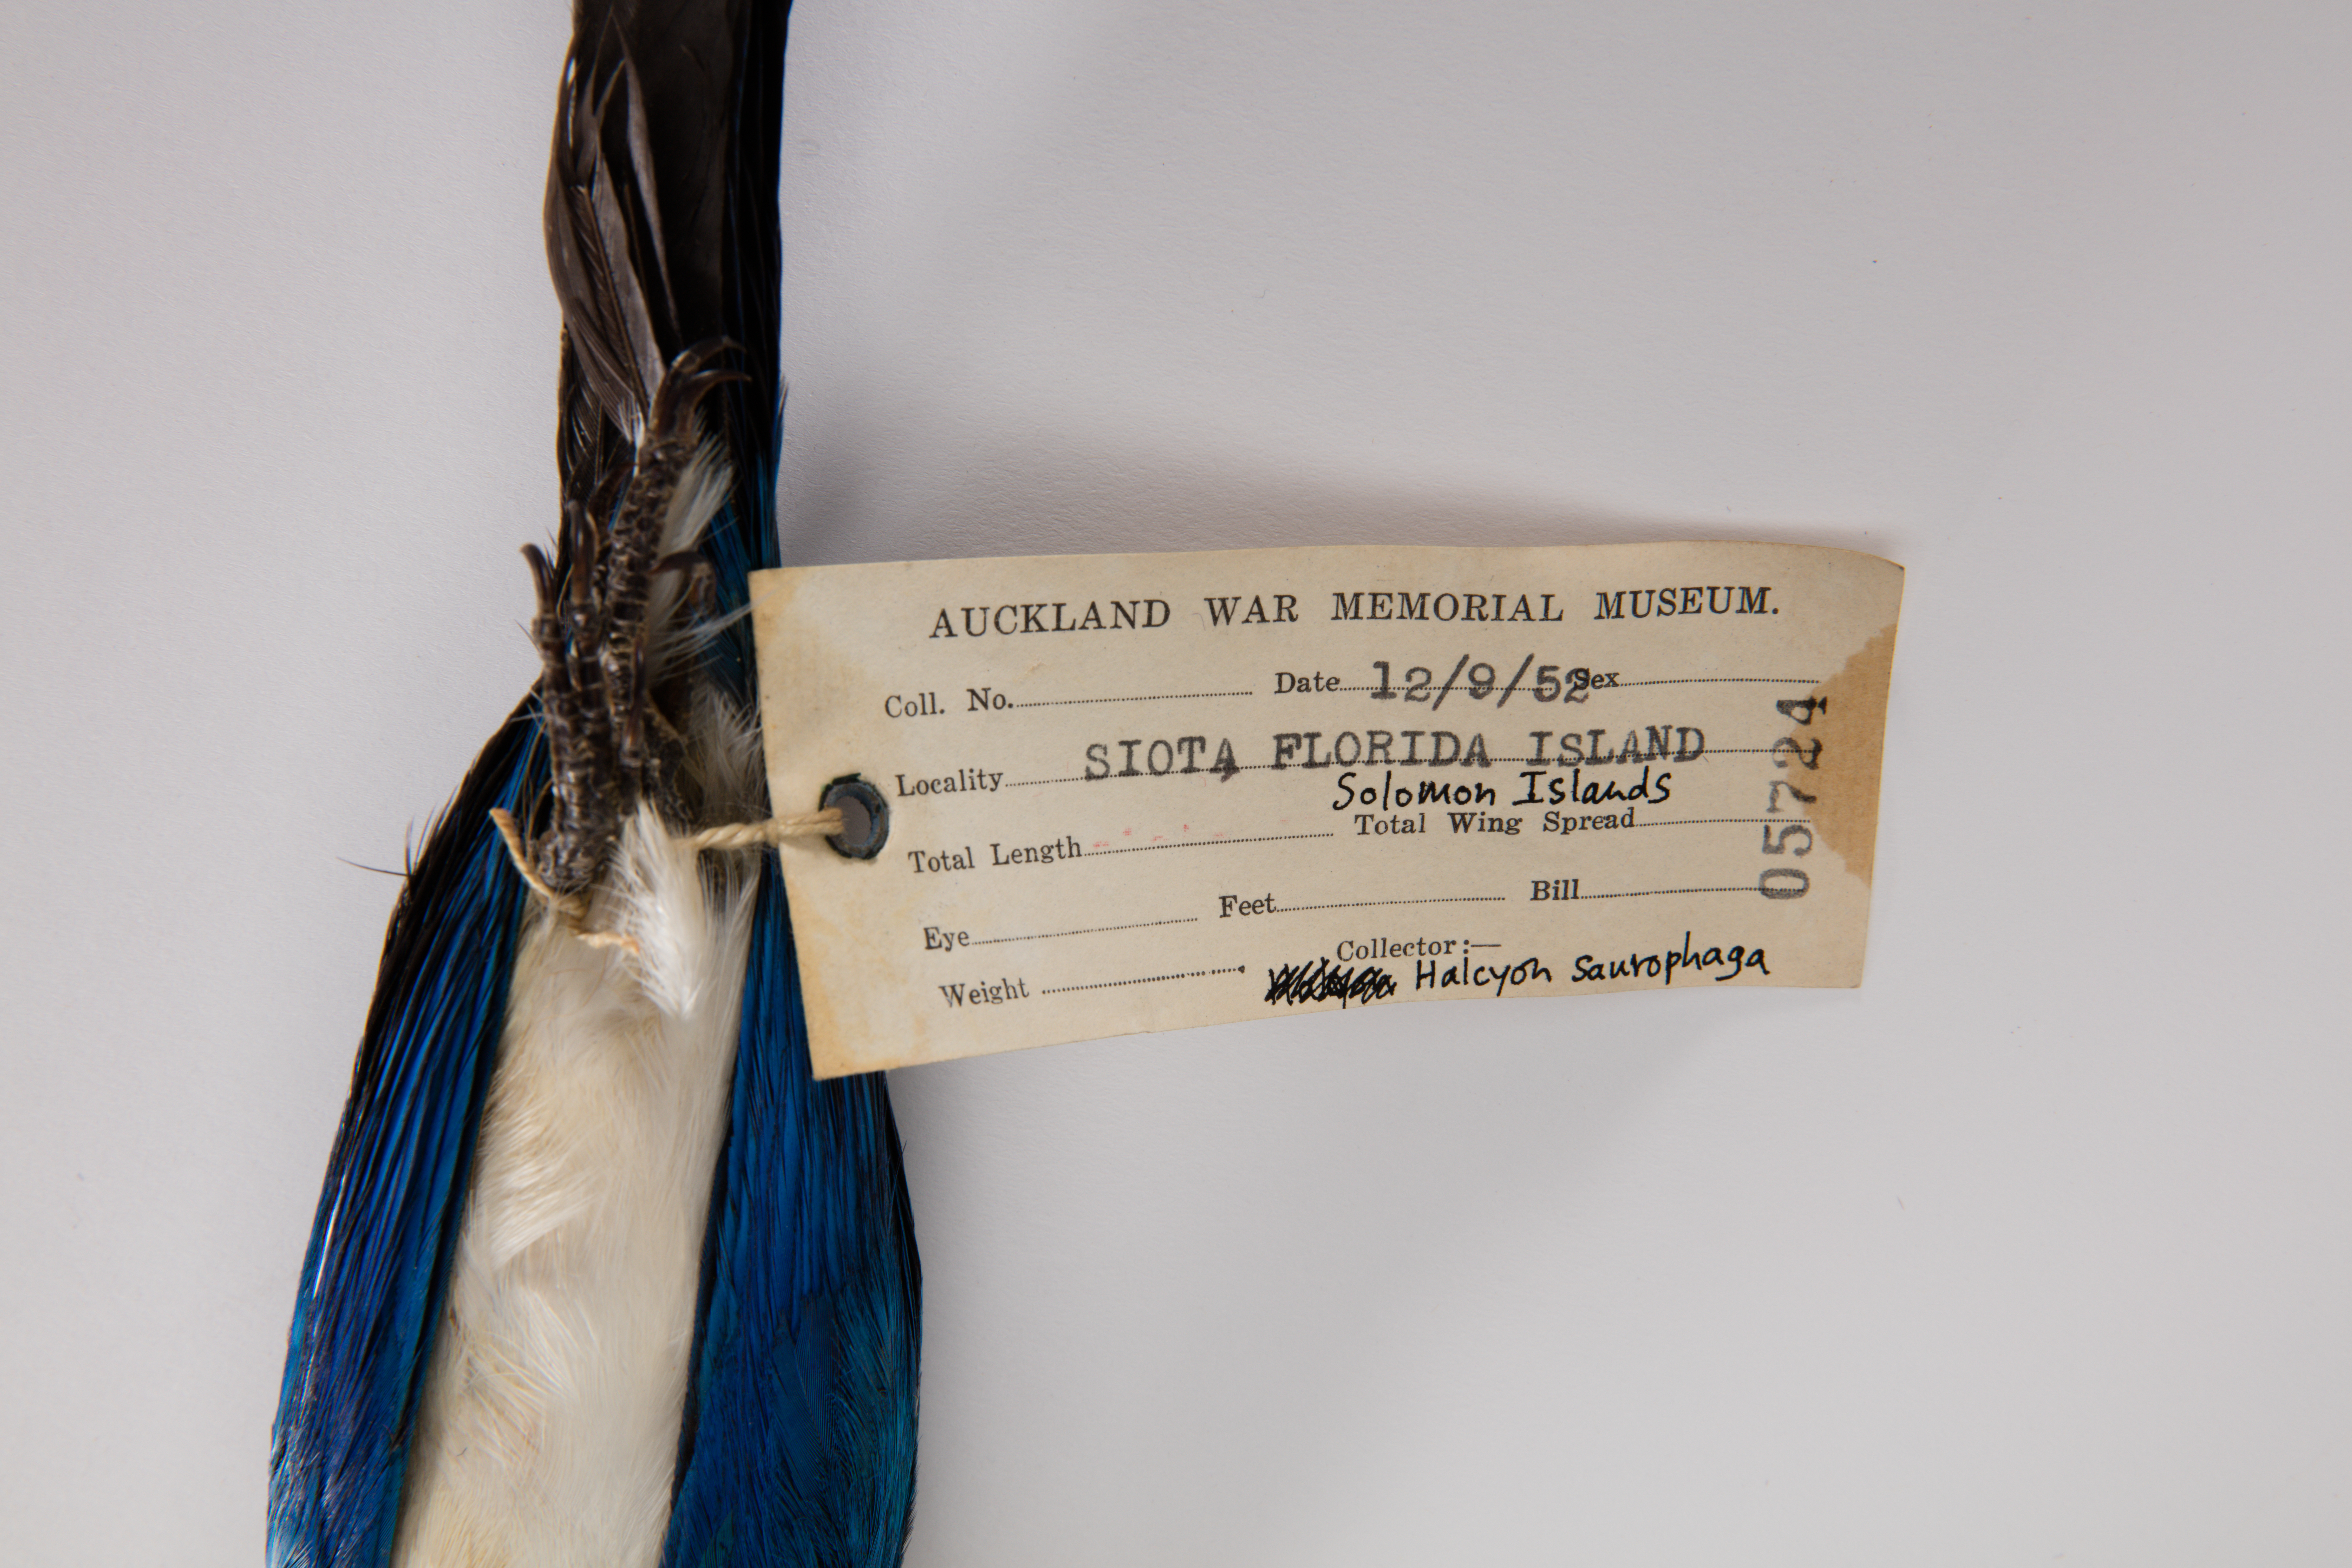 AUCKLAND WAR MEMORIAL MUSEUM.
Coll. No. Date 12/9/52 Sex
Locality SIOTA FLORIDA ISLAND
Solomon Islands
Total Length Total Wing Spread
Eye Feet Bill
Weight Collector:—
Halcyon saurophaga
05724